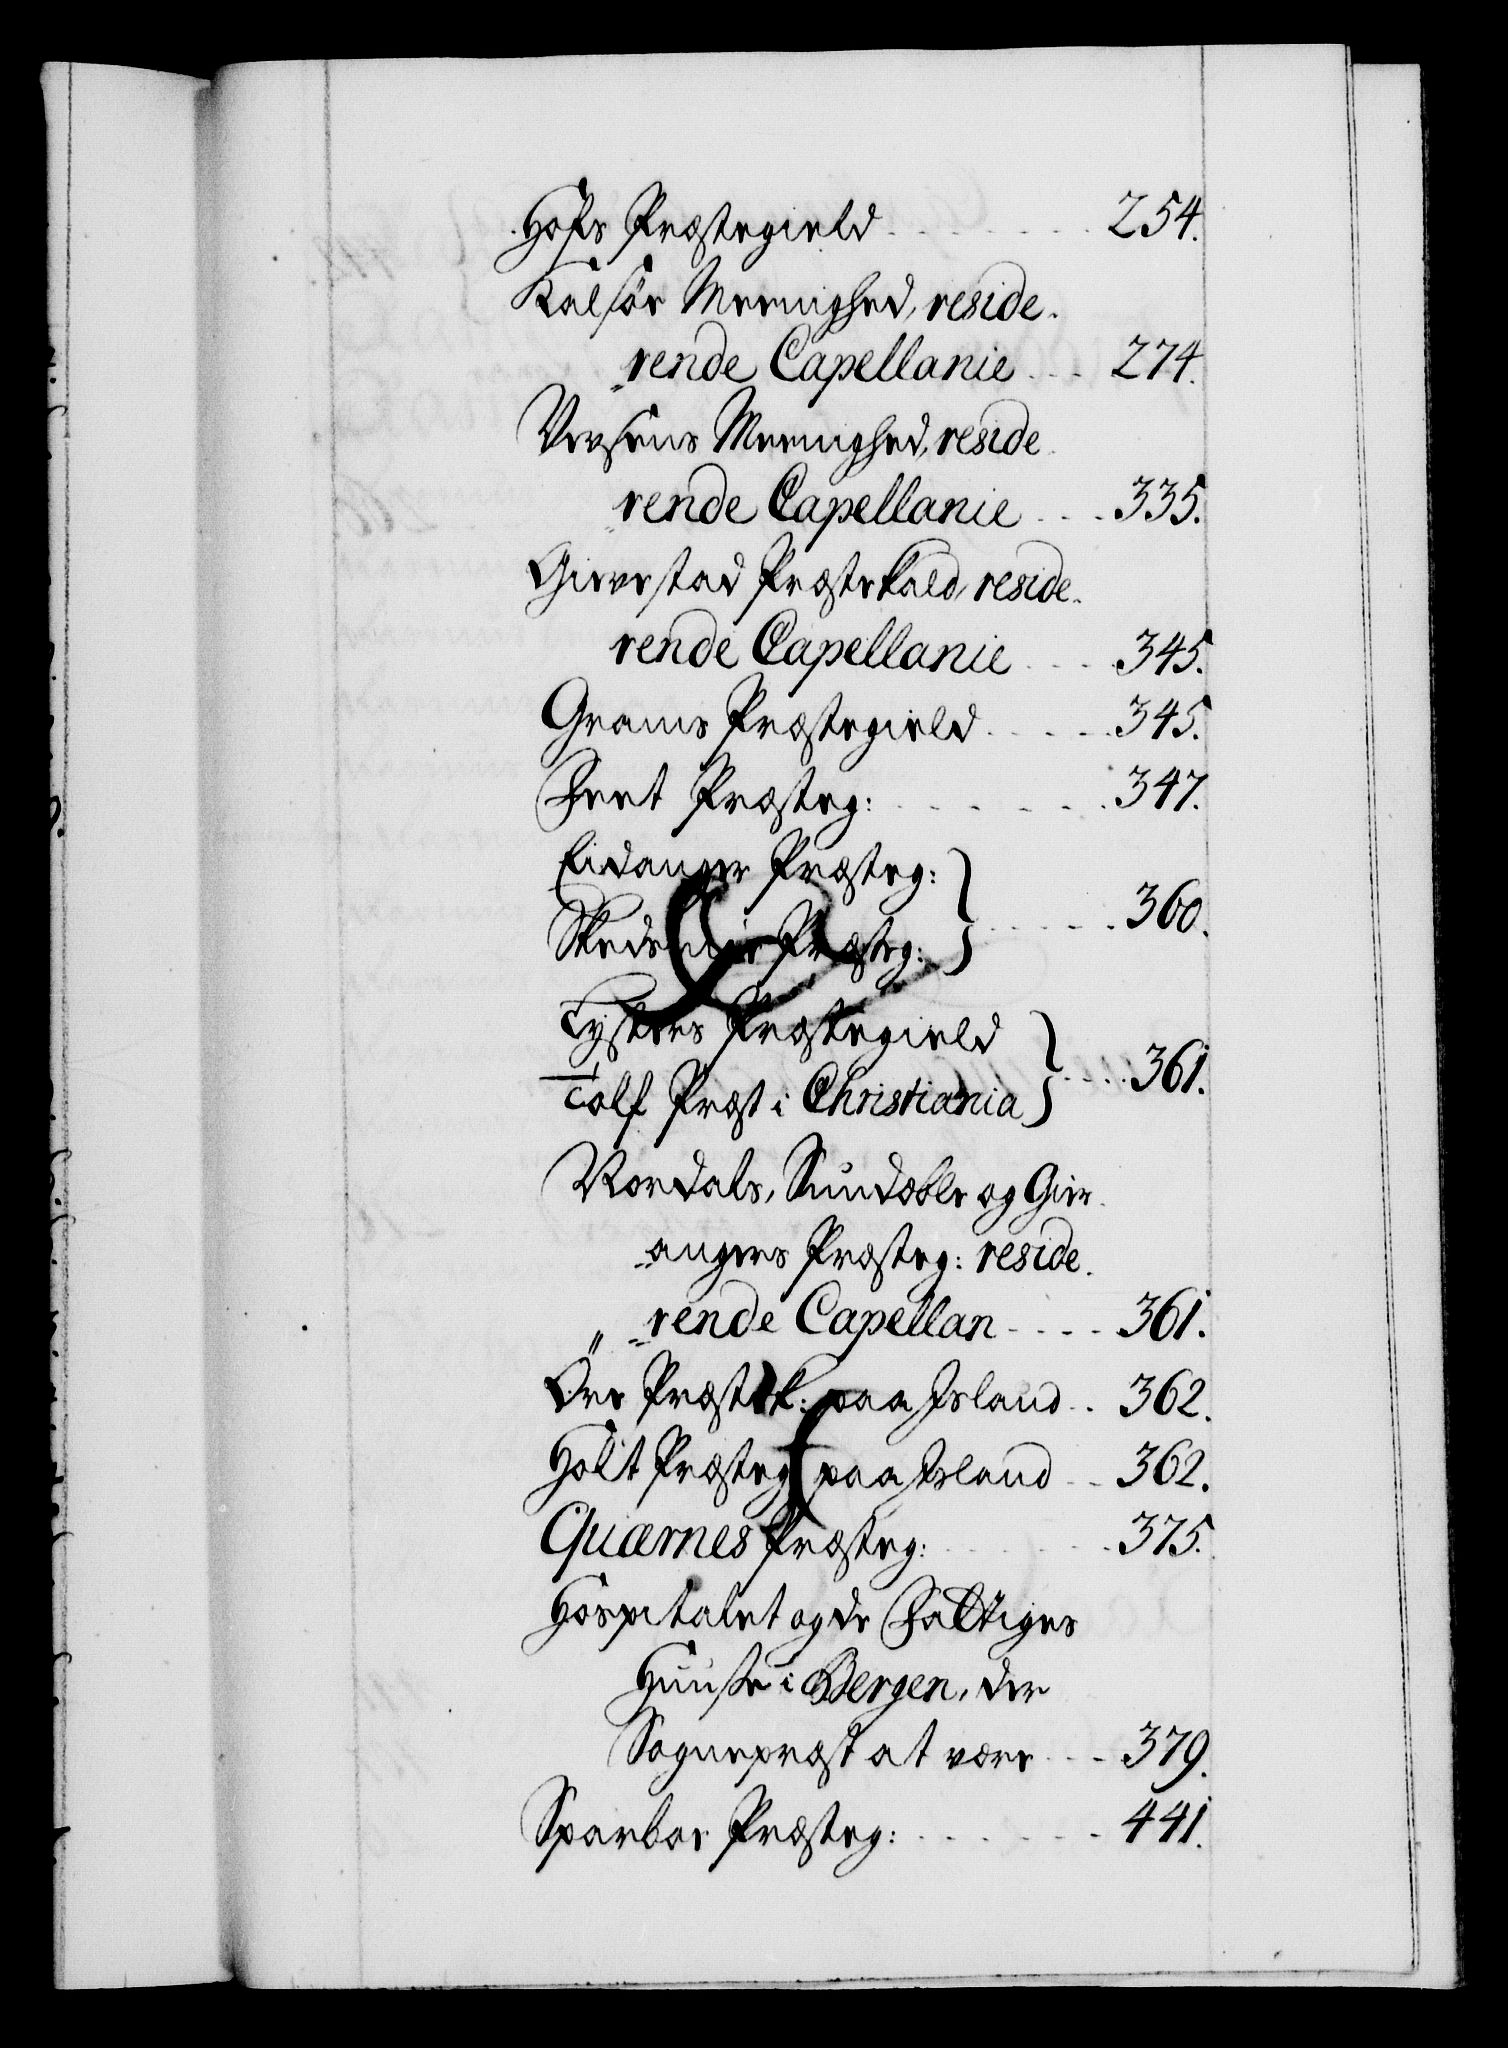 Hofs Præstegield . . . . . . . 254.
Kalsör Meenighed, reside-
rende Capellanie . . . 274.
Vefsens Meenighed, reside-
rende Capellanie . . . 335.
Gierestad Præstekald, reside-
rende Capellanie . . . . 345.
Grams Præstegield . . . . . 345.
Feet Præsteg: . . . . . . . 347.
Eidanger Præsteg: }
Skedsmoe Præsteg: } . . . . . 360.
Lysters Præstegield }
Tolf Præst i Christiania } . . . . 361.
Nordals, Sundals og Gier-
angers Præsteg: reside-
rende Capellan . . . . 361.
Öre Præstek: paa Island . . 362.
Holt Præsteg: paa Island . . 362.
Quærnes Præsteg: . . . . . . 375.
Hospitalet og de Fattiges
Huuse i Bergen, der
Sognepræst at være . . . 379.
Sparboe Præsteg: . . . . . . . 441.